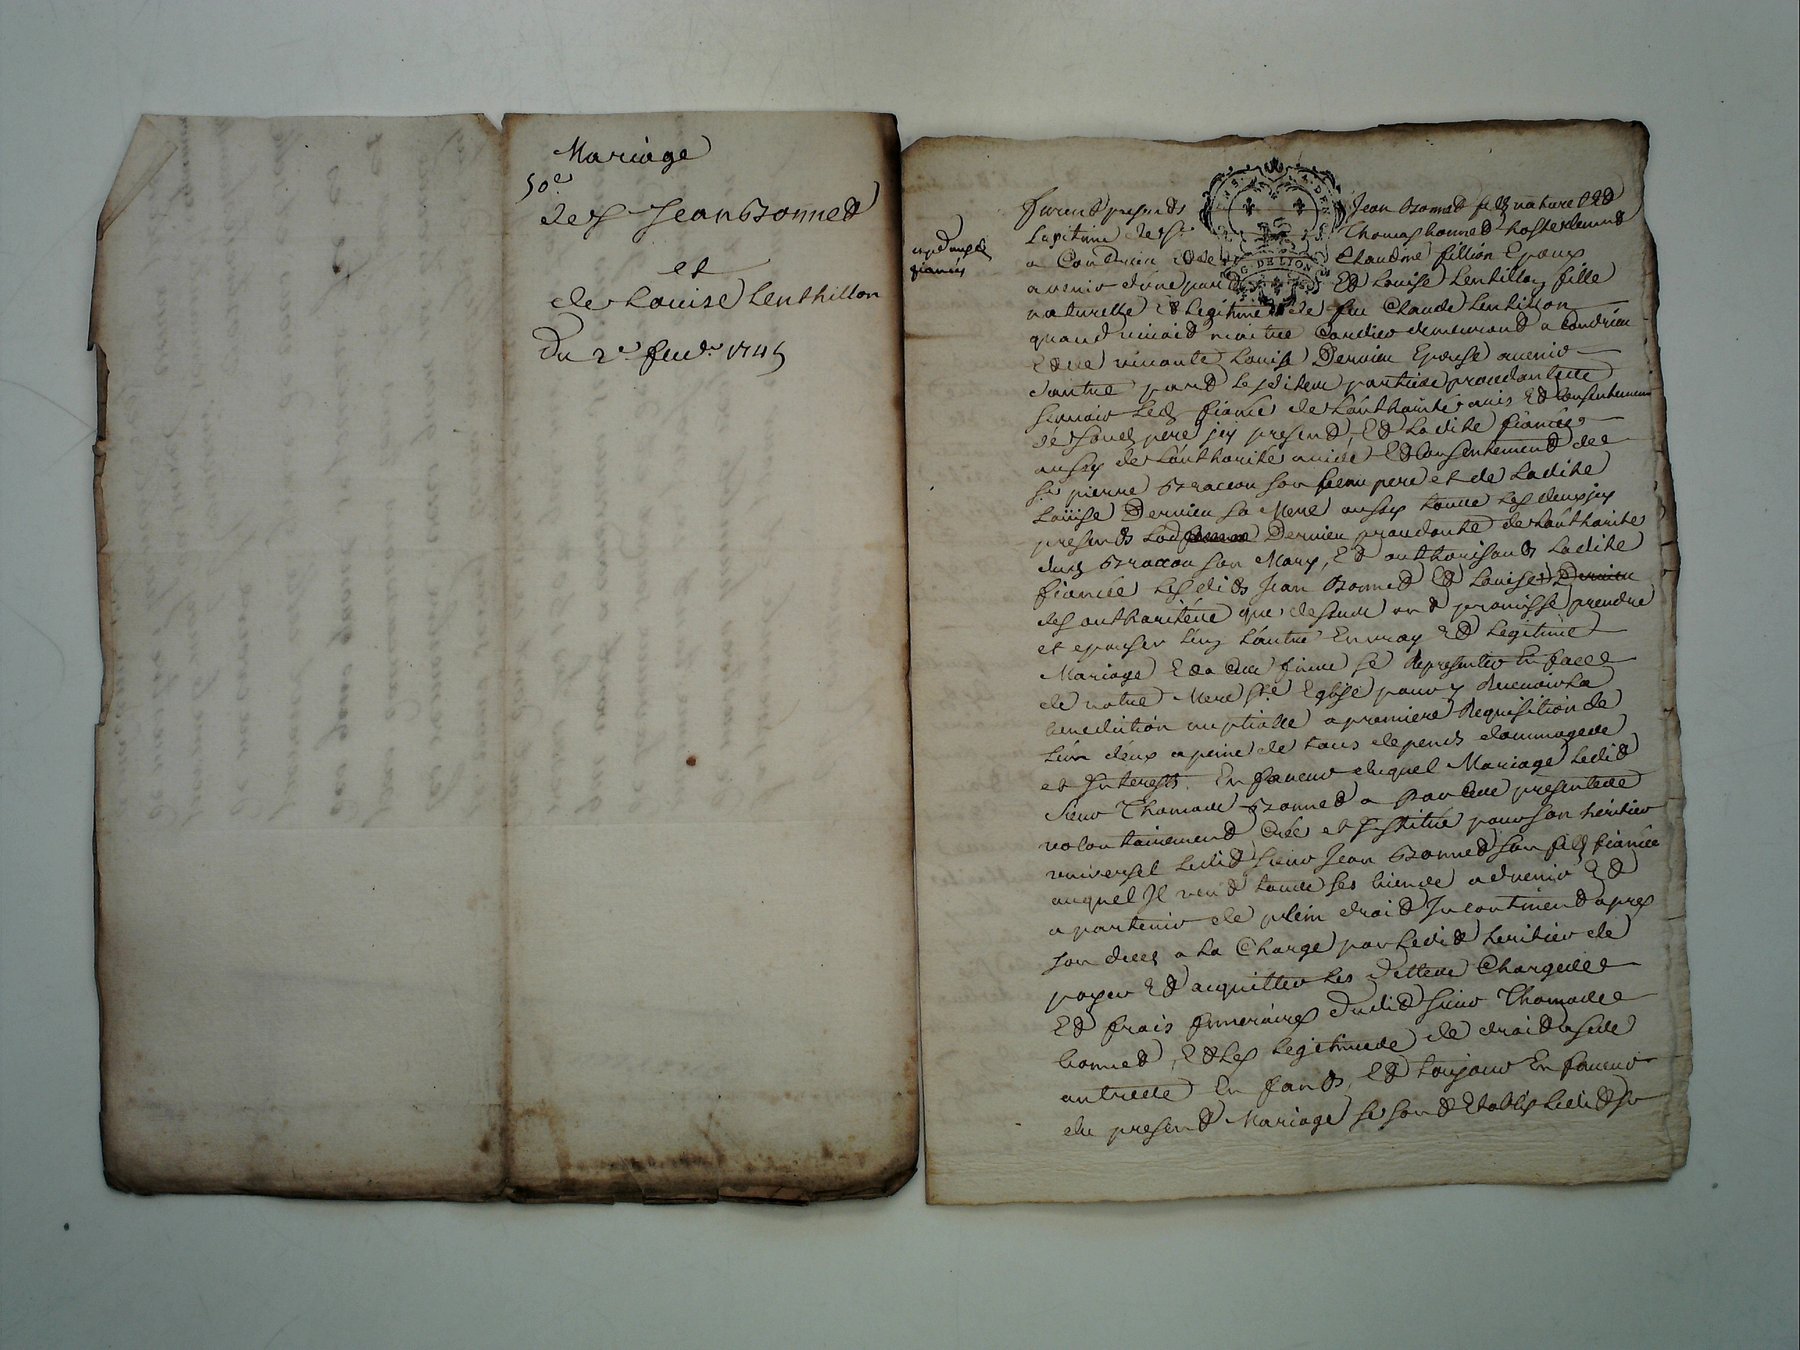 Mariage
50e
de Sr Jean Bonned
et
de Louise Lenthillon
Du 2e feur. 1745
furend presends Jean Bonned fils naturel Ed
Legitime de Sr Thomas bonned hoste demeurd
a Condrieu Claudine fillion Epoux
avenir d'une part Ed Louise Lentillon fille
naturelle Ed Legitime de feu Claude Lentillon
quand vivoid maitre Cordier demeurand a Condrieu
Ed de vivante Louise Dervieu Epouse avenir
d'autre pard Lesdites parties procedantes
scavoir Led fiancé de L'authorité avis Ed Consentement
de sond pere jcy presend, Ed Ladite fiancée
aussy de L'authorité avise Ed Consentemend de
Sr pierre Braccou son beau pere et de Ladite
Loüise Dervieu sa Mere aussy tous Les deux jcy
presends Lad Dervieu procedante de L'authorité
dud Braccou son Mary, Ed authorisands Ladite
fiancée Lesdits Jean Bonned Ed Louise Dervieu
des authorités que dessus ond promisse prendre
et epouser L'un L'autre En vray Ed Legitime
Mariage Ed a cette fin se Representer En face
de notre Mere Ste Eglise pour y Recevoir La
benediction nuptialle a premiere Requisition de
L'un d'eux a peine de tous depends dommages
et Interests. En faveur duquel Mariage Ledid
Sieur Thomas Bonned a Par ces presentes
volontairemend Créé et Institué pour son heritier
universel Ledid Sieur Jean Bonned son fils fiancé
auquel Il veud tous ses biens advenir Ed
apartenir de plein droid Incontinend apres
son deces a La Charge par Ledid heritier de
payer Ed acquitter Les dettes Charges
Ed frais funeraires dudid Sieur Thomas
bonned, Ed Les Legitimes de droid a ses
autres Enfands, Ed toujour En faveur
du presend Mariage se sond Etablis Ledid Sr
G. DE LION